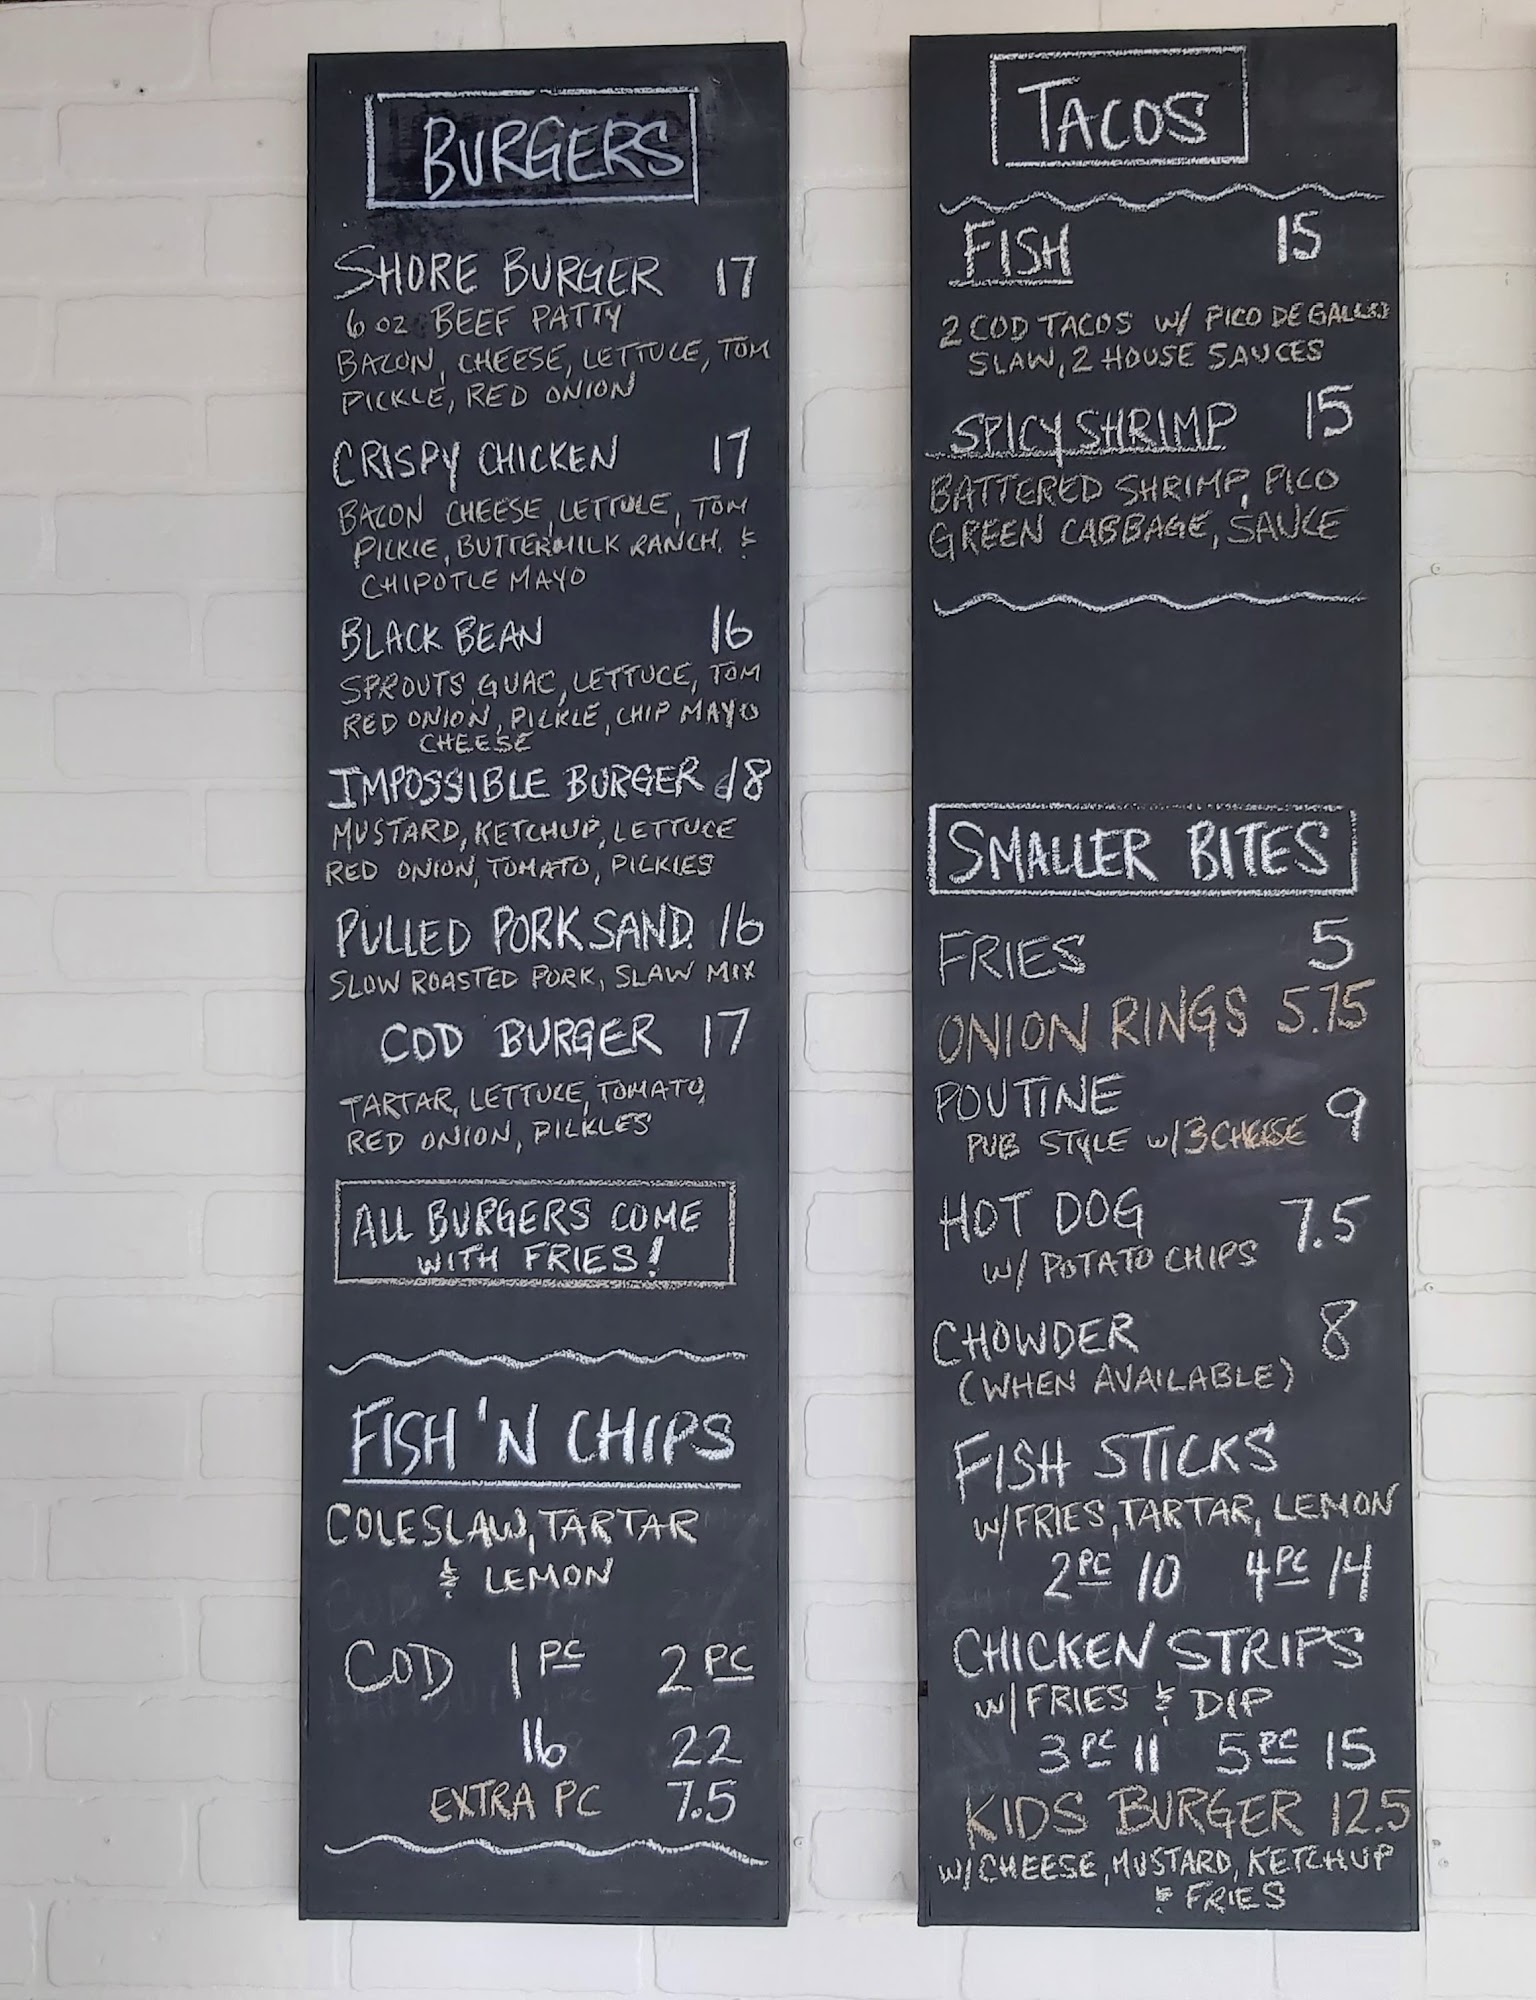 BURGERS
SHORE BURGER 17
6 OZ BEEF PATTY
BACON, CHEESE, LETTUCE, TOM
PICKLE, RED ONION
CRISPY CHICKEN 17
BACON CHEESE, LETTUCE, TOM
PICKLE, BUTTERMILK RANCH, &
CHIPOTLE MAYO
BLACK BEAN 16
SPROUTS, GUAC, LETTUCE, TOM
RED ONION, PICKLE, CHIP MAYO
CHEESE
IMPOSSIBLE BURGER 18
MUSTARD, KETCHUP, LETTUCE
RED ONION, TOMATO, PICKLES
PULLED PORK SAND. 16
SLOW ROASTED PORK, SLAW MIX
COD BURGER 17
TARTAR, LETTUCE, TOMATO,
RED ONION, PICKLES
ALL BURGERS COME
WITH FRIES!
FISH 'N CHIPS
COLESLAW, TARTAR
& LEMON
COD 1 PC 2 PC
16 22
EXTRA PC 7.5
TACOS
FISH 15
2 COD TACOS W/ PICO DE GALLO
SLAW, 2 HOUSE SAUCES
SPICY SHRIMP 15
BATTERED SHRIMP, PICO
GREEN CABBAGE, SAUCE
SMALLER BITES
FRIES 5
ONION RINGS 5.75
POUTINE 9
PUB STYLE W/ 3 CHEESE
HOT DOG 7.5
W/ POTATO CHIPS
CHOWDER 8
(WHEN AVAILABLE)
FISH STICKS
W/ FRIES, TARTAR, LEMON
2 PC 10 4 PC 14
CHICKEN STRIPS
W/ FRIES & DIP
3 PC 11 5 PC 15
KIDS BURGER 12.5
W/ CHEESE, MUSTARD, KETCHUP
& FRIES